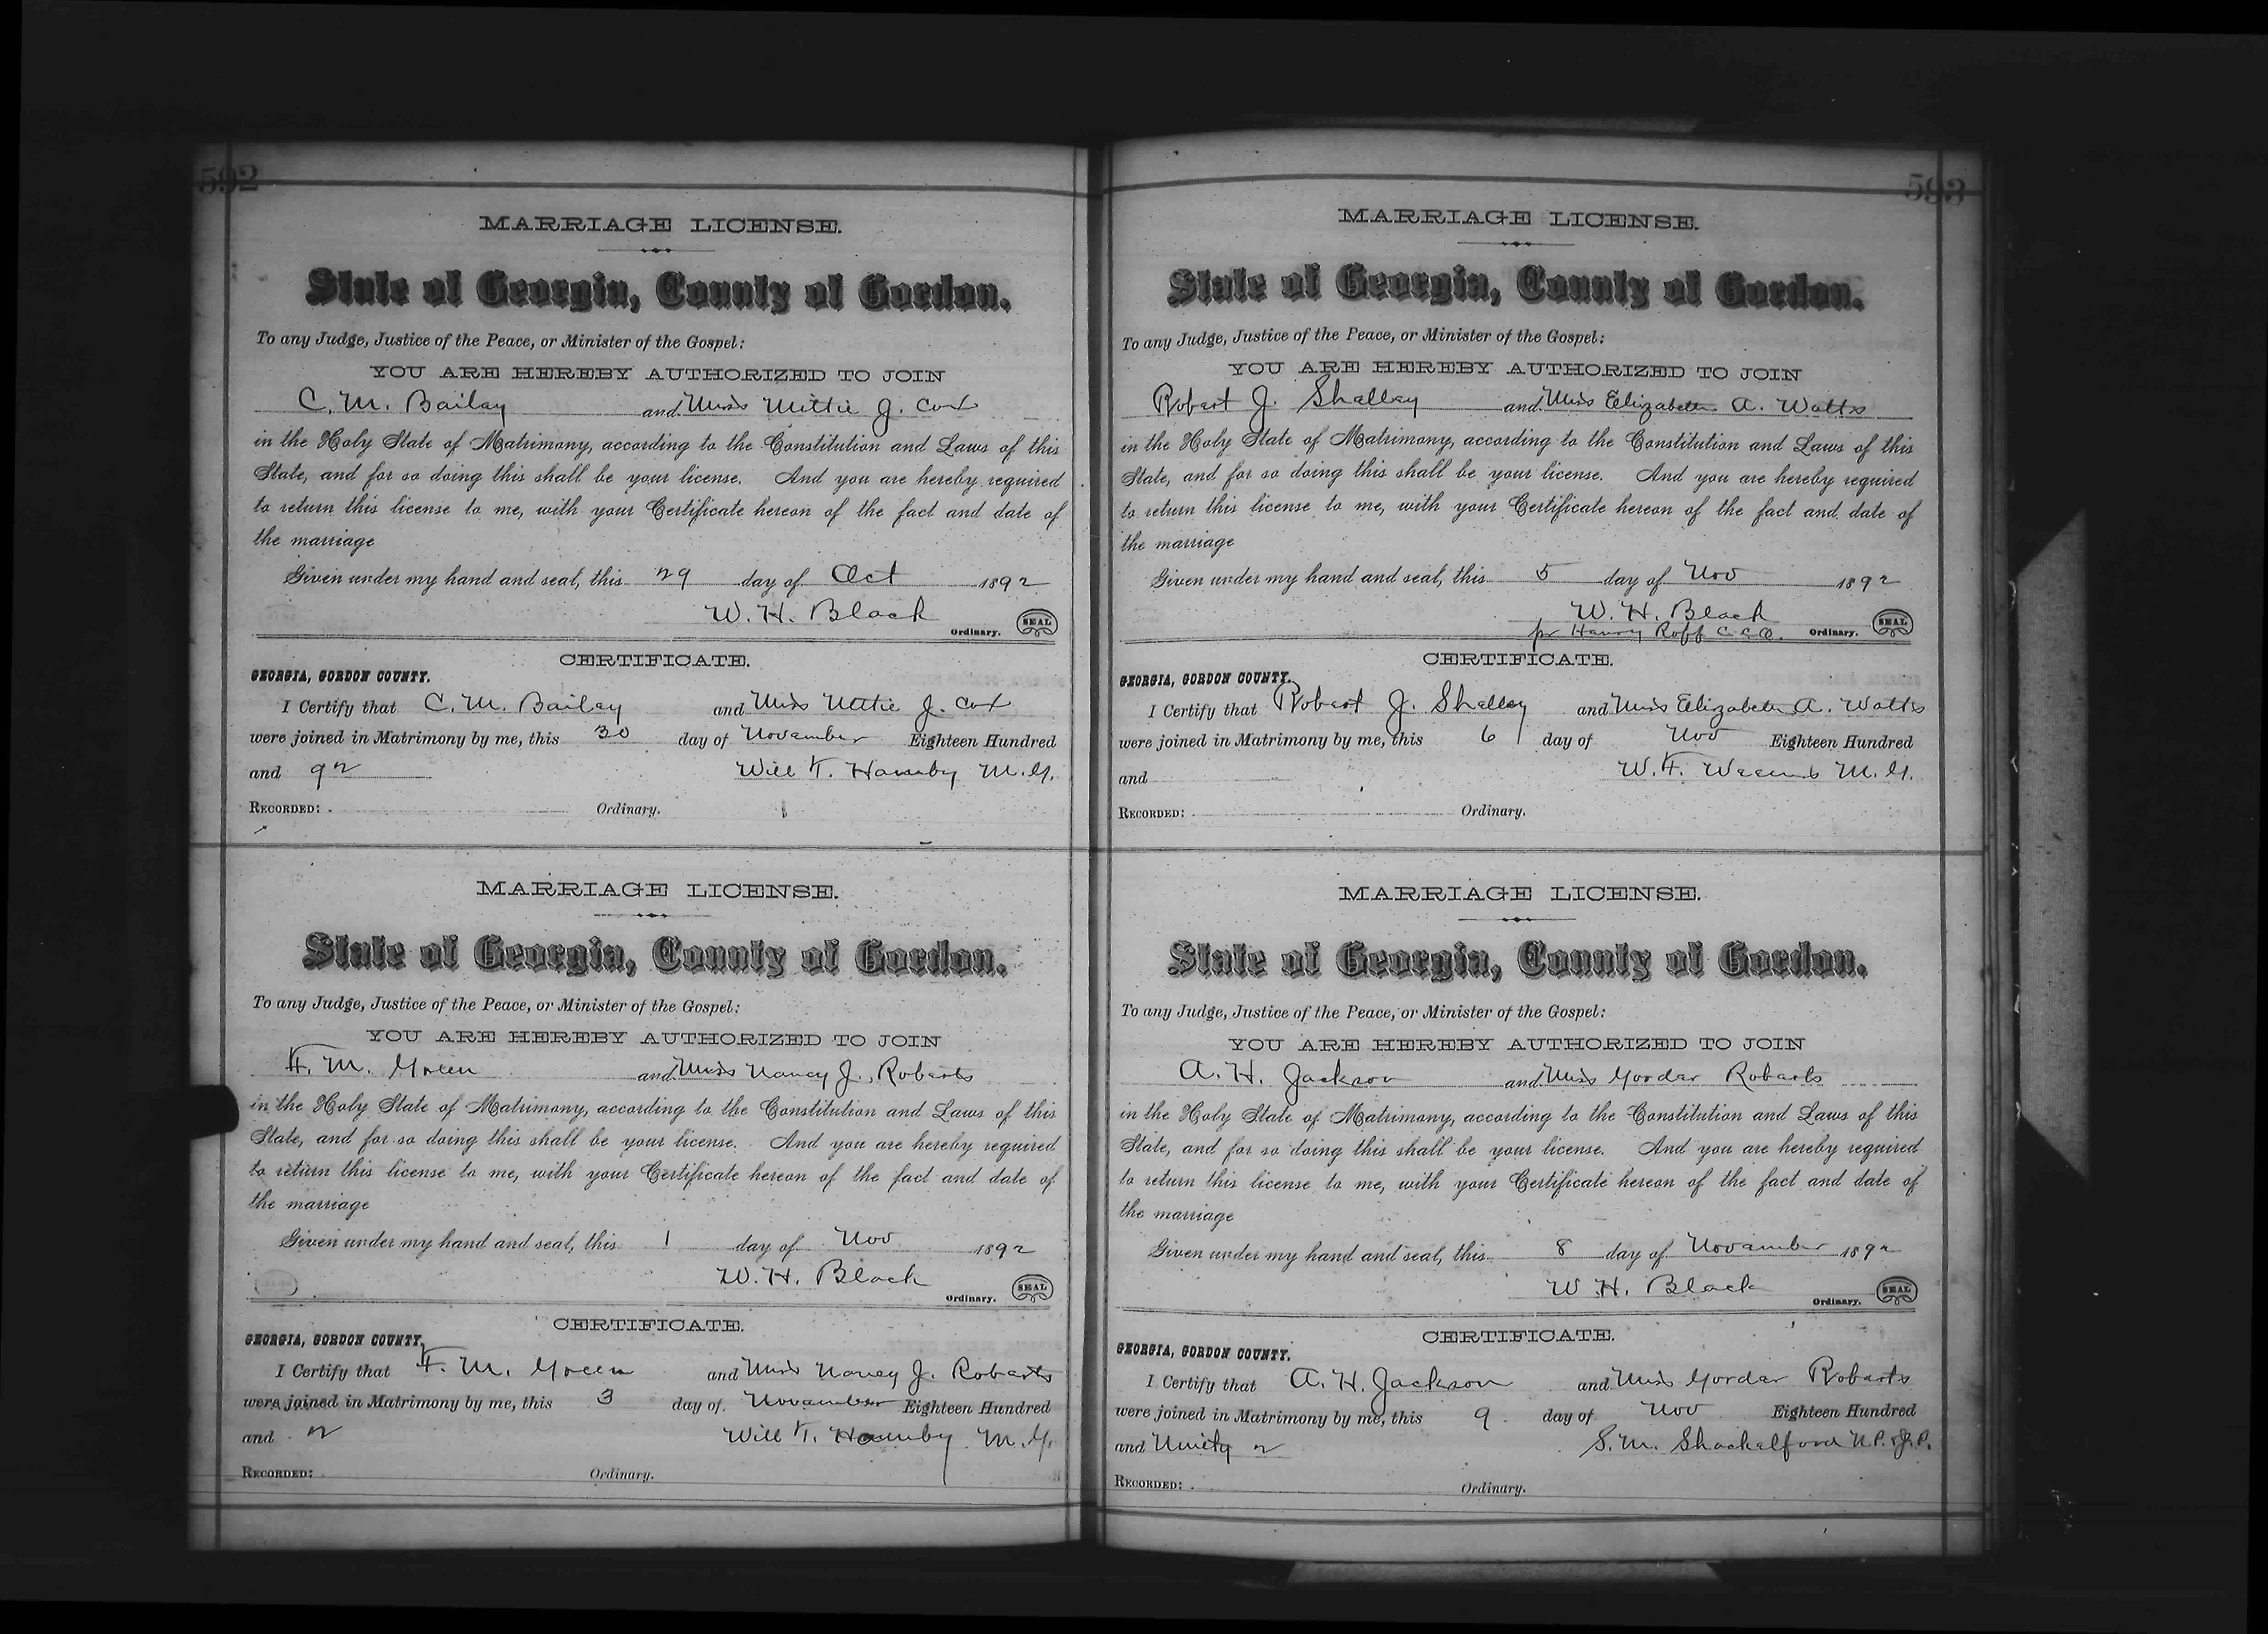 592
MARRIAGE LICENSE.
State of Georgia, County of Gordon.
To any Judge, Justice of the Peace, or Minister of the Gospel:
YOU ARE HEREBY AUTHORIZED TO JOIN
C. M. Bailey and Miss Mittie J. Cox
in the Holy State of Matrimony, according to the Constitution and Laws of this
State, and for so doing this shall be your license. And you are hereby required
to return this license to me, with your Certificate hereon of the fact and date of
the marriage
Given under my hand and seal, this 29 day of Oct 1892
W. H. Black
Ordinary. SEAL
CERTIFICATE.
GEORGIA, GORDON COUNTY.
I Certify that C. M. Bailey and Miss Mittie J. Cox
were joined in Matrimony by me, this 30 day of November Eighteen Hundred
and 92 Will F. Hamby M. G.
RECORDED: Ordinary.
MARRIAGE LICENSE.
State of Georgia, County of Gordon.
To any Judge, Justice of the Peace, or Minister of the Gospel:
YOU ARE HEREBY AUTHORIZED TO JOIN
F. M. Green and Miss Nancy J. Roberts
in the Holy State of Matrimony, according to the Constitution and Laws of this
State, and for so doing this shall be your license. And you are hereby required
to return this license to me, with your Certificate hereon of the fact and date of
the marriage
Given under my hand and seal, this 1 day of Nov 1892
W. H. Black
Ordinary. SEAL
CERTIFICATE.
GEORGIA, GORDON COUNTY.
I Certify that F. M. Green and Miss Nancy J. Roberts
were joined in Matrimony by me, this 3 day of November Eighteen Hundred
and 2 Will F. Hamby M. G.
RECORDED: Ordinary.
593
MARRIAGE LICENSE.
State of Georgia, County of Gordon.
To any Judge, Justice of the Peace, or Minister of the Gospel:
YOU ARE HEREBY AUTHORIZED TO JOIN
Robert J. Shelley and Miss Elizabeth A. Watts
in the Holy State of Matrimony, according to the Constitution and Laws of this
State, and for so doing this shall be your license. And you are hereby required
to return this license to me, with your Certificate hereon of the fact and date of
the marriage
Given under my hand and seal, this 5 day of Nov 1892
W. H. Black
pr Harry Roff C. C. O. Ordinary. SEAL
CERTIFICATE.
GEORGIA, GORDON COUNTY.
I Certify that Robert J. Shelley and Miss Elizabeth A. Watts
were joined in Matrimony by me, this 6 day of Nov Eighteen Hundred
and W. F. M. G.
RECORDED: Ordinary.
MARRIAGE LICENSE.
State of Georgia, County of Gordon.
To any Judge, Justice of the Peace, or Minister of the Gospel:
YOU ARE HEREBY AUTHORIZED TO JOIN
A. H. Jackson and Miss Gordar Roberts
in the Holy State of Matrimony, according to the Constitution and Laws of this
State, and for so doing this shall be your license. And you are hereby required
to return this license to me, with your Certificate hereon of the fact and date of
the marriage
Given under my hand and seal, this 8 day of November 1892
W. H. Black
Ordinary. SEAL
CERTIFICATE.
GEORGIA, GORDON COUNTY.
I Certify that A. H. Jackson and Miss Gordar Roberts
were joined in Matrimony by me, this 9 day of Nov Eighteen Hundred
and Ninety 2 S. M. Shackelford N. P. & J. P.
RECORDED: Ordinary.